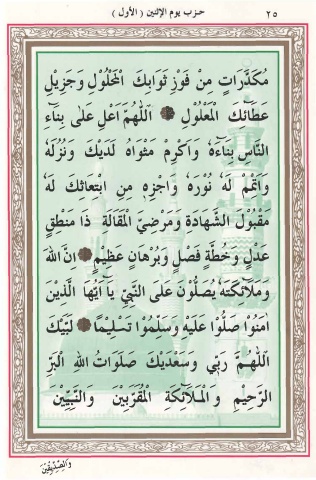 حزب يوم الإثنين ( الأول )
٢٥
مُكَدَّرَاتٍ مِنْ فَوْزِ ثَوَابِكَ الْمَحْلُولِ وَجَزِيلِ
عَطَائِكَ الْمَعْلُولِ ۞ اَللّٰهُمَّ اعْلِ عَلٰى بِنَاءِ
النَّاسِ بِنَاءَهُ وَاَكْرِمْ مَثْوَاهُ لَدَيْكَ وَنُزُلَهُ
وَاَتْمِمْ لَهُ نُورَهُ وَاجْزِهِ مِنِ ابْتِعَاثِكَ لَهُ
مَقْبُولَ الشَّهَادَةِ وَمَرْضِيَّ الْمَقَالَةِ ذَا مَنْطِقٍ
عَدْلٍ وَخُطَّةٍ فَصْلٍ وَبُرْهَانٍ عَظِيمٍ ۞ اِنَّ اللهَ
وَمَلَائِكَتَهُ يُصَلُّونَ عَلَى النَّبِيِّ يَا اَيُّهَا الَّذِينَ
اٰمَنُوا صَلُّوا عَلَيْهِ وَسَلِّمُوا تَسْلِيمًا ۞ لَبَّيْكَ
اَللّٰهُمَّ رَبِّي وَسَعْدَيْكَ صَلَوَاتُ اللهِ الْبَرِّ
الرَّحِيْمِ وَالْمَلَائِكَةِ الْمُقَرَّبِينَ وَالنَّبِيِّينَ
وَالصِّدِّيقِينَ